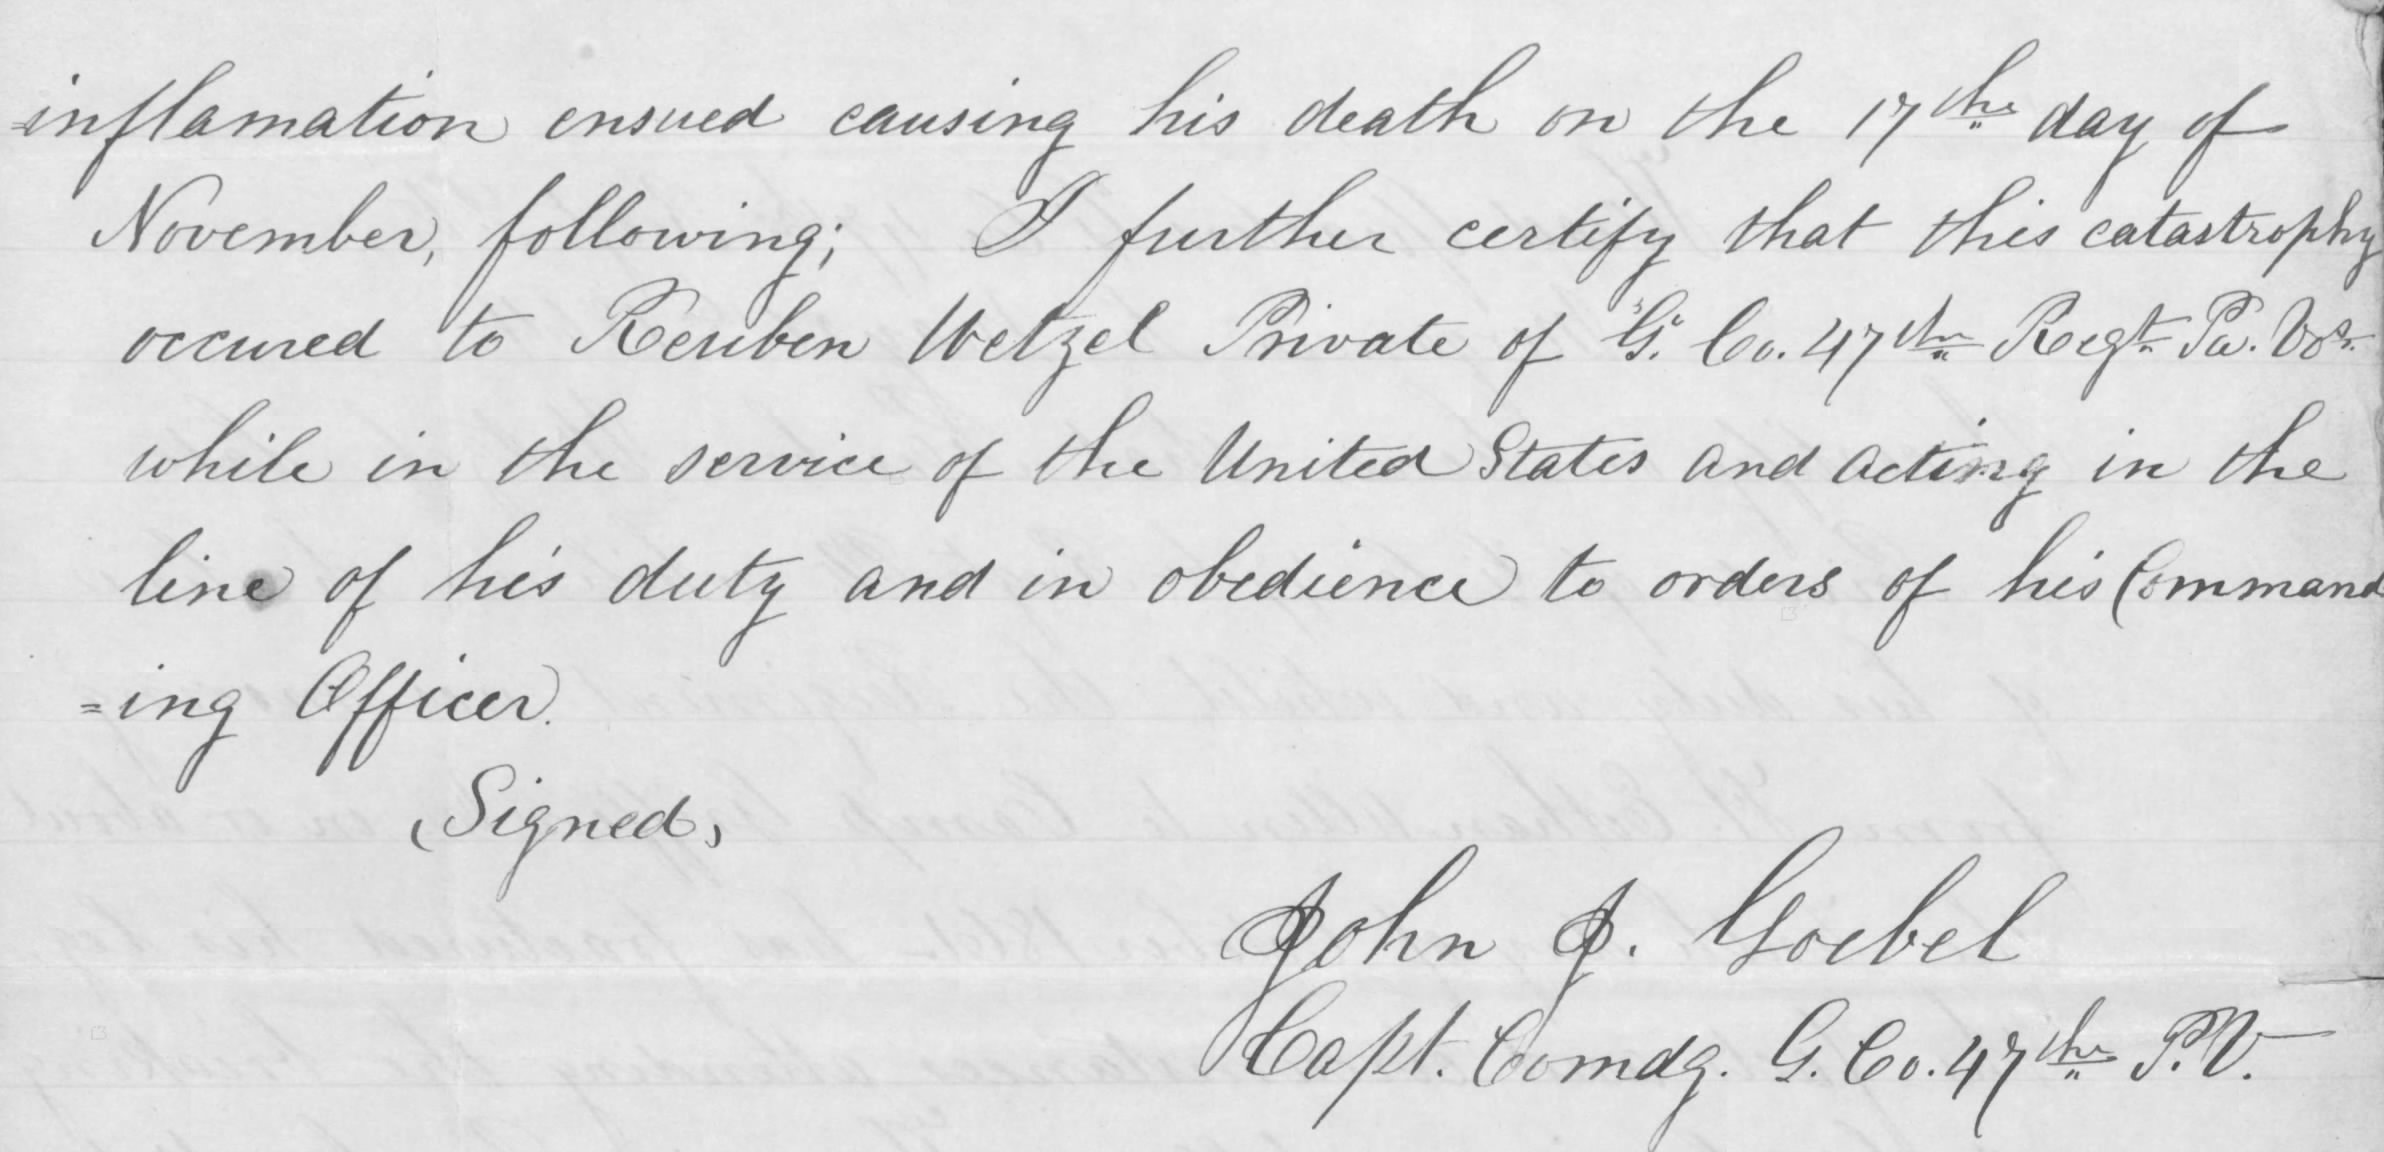 =inflamation ensued causing his death on the 17th day of
November, following; I further certify that this catastrophy
occured to Reuben Wetzel Private of "G" Co. 47th Regt. Pa. Vols.
while in the service of the United States and acting in the
line of his duty and in obedience to orders of his Command
=ing Officer.
(Signed)
John J. Goebel
Capt. Comdg. G. Co. 47th P.V.